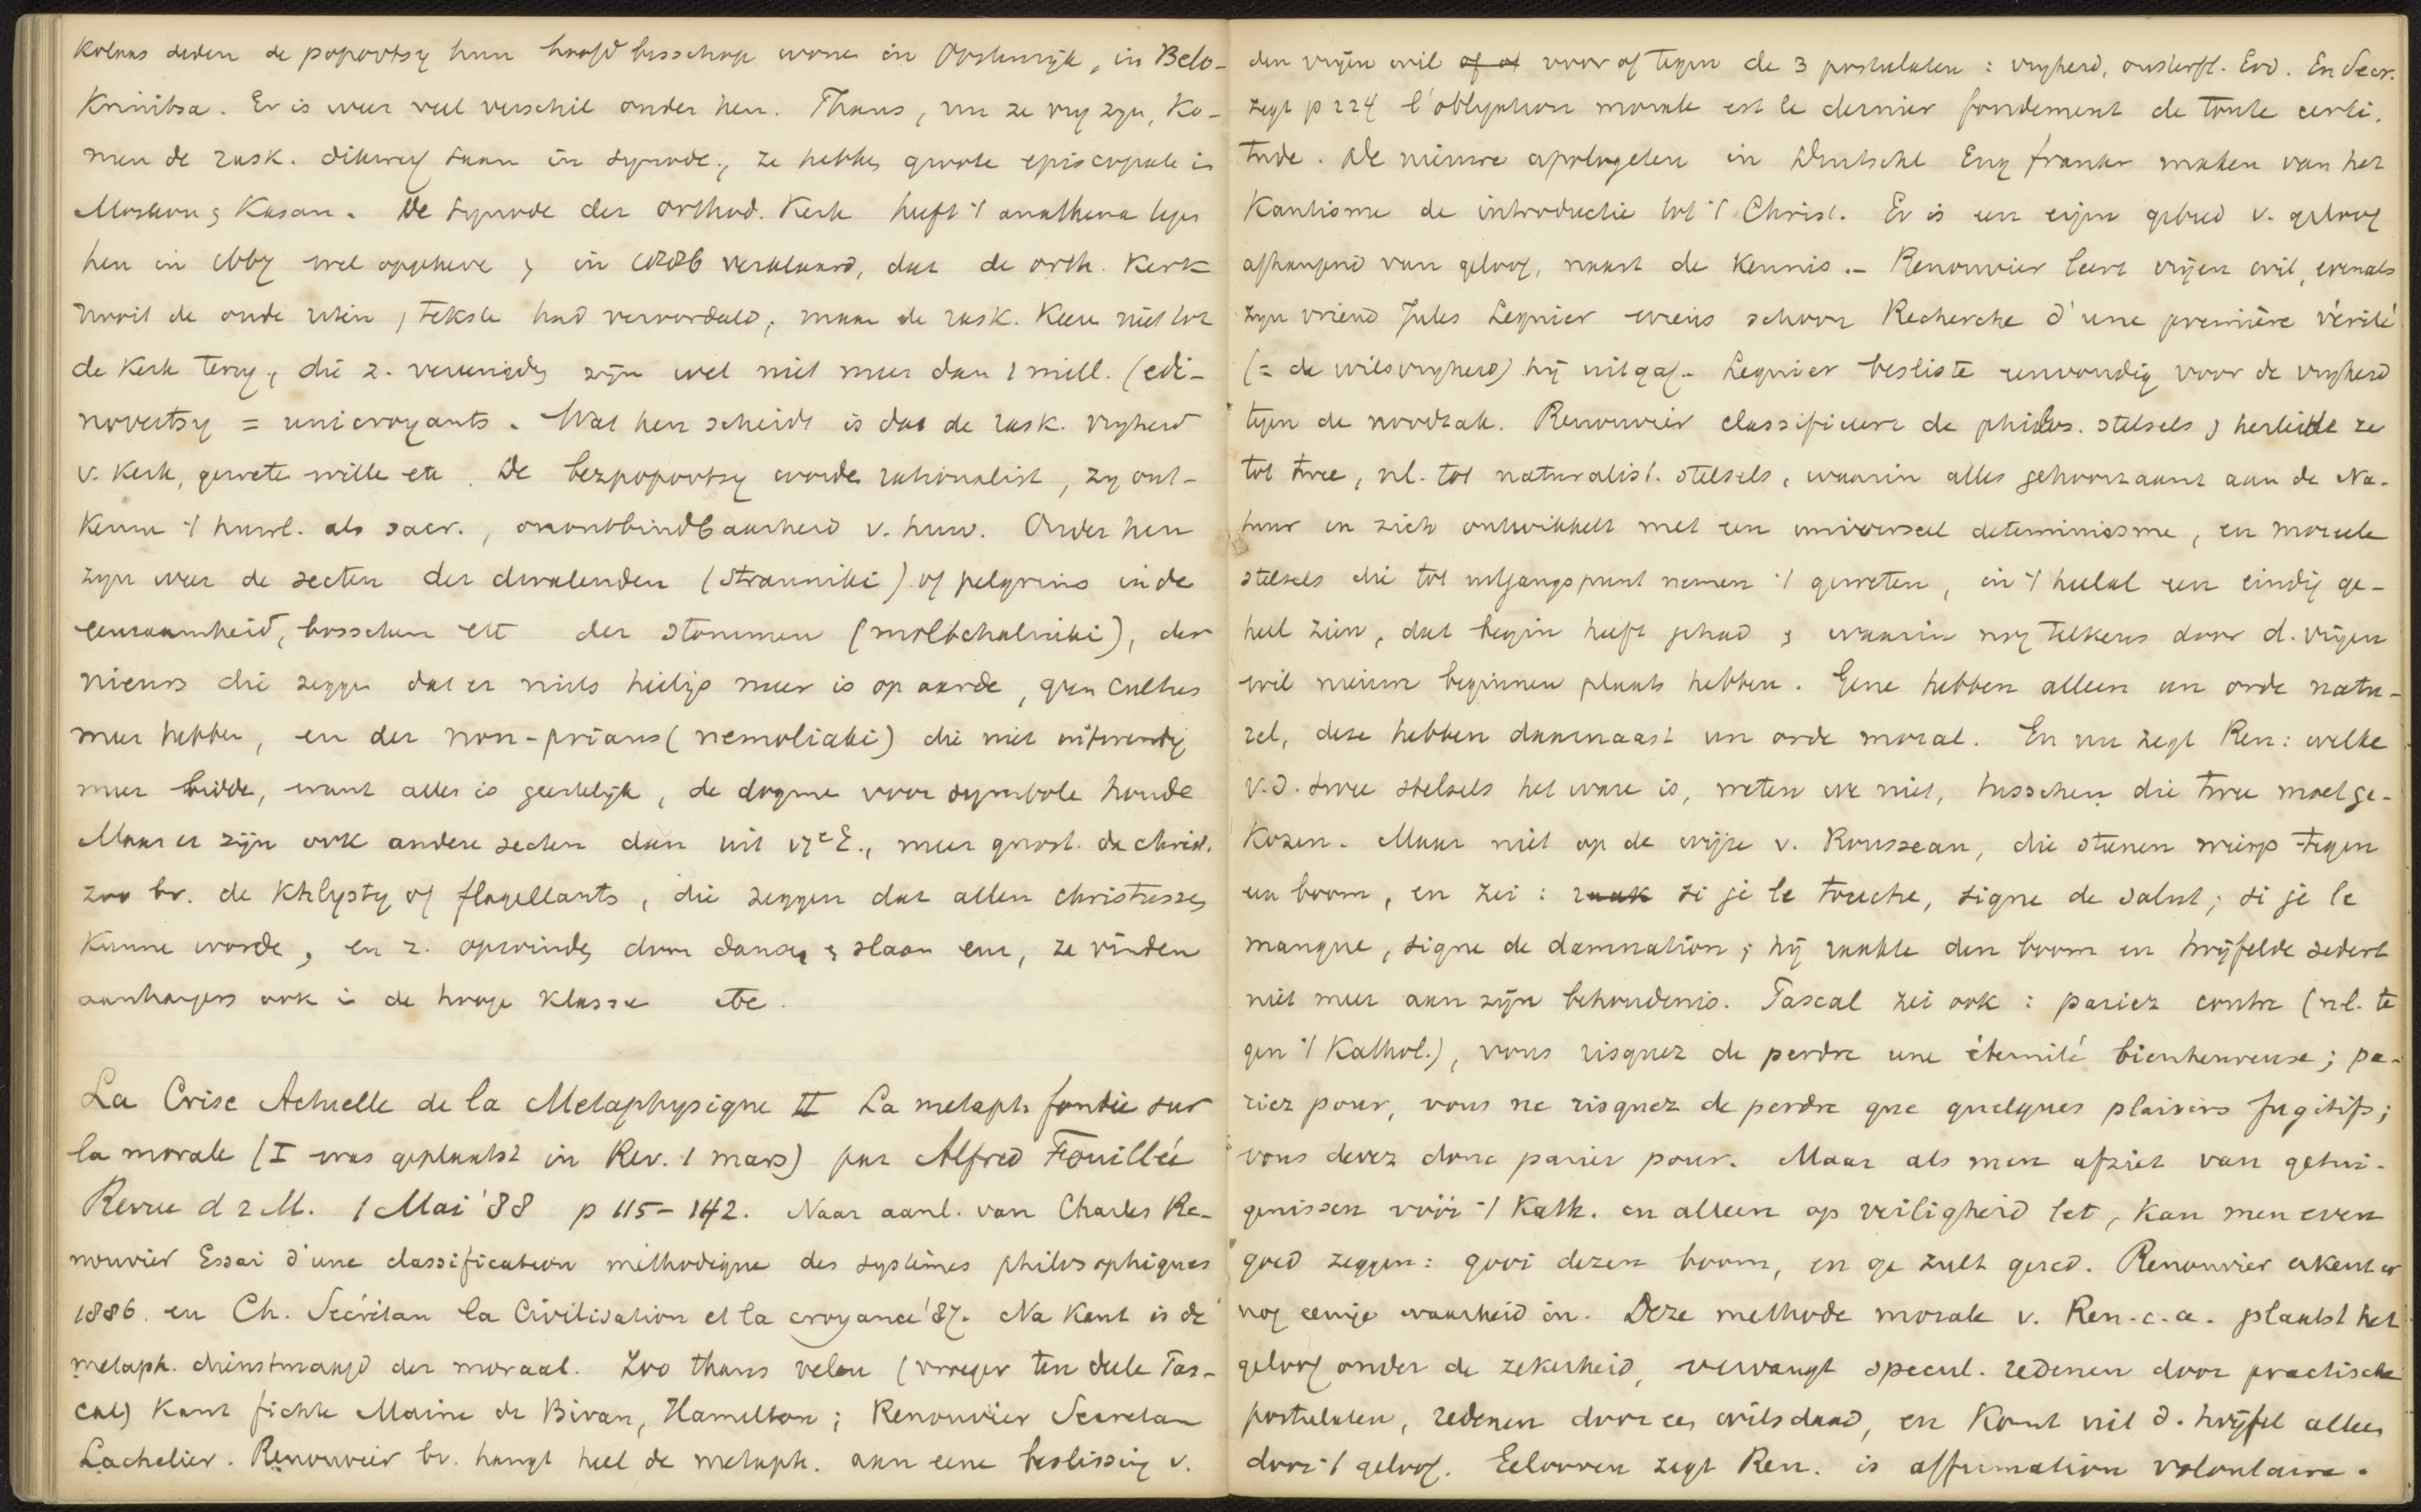 Kolaas deden de popovtsy hun hoofdbisschop wonen in Oostenrijk, in Belo-
Krinitsa. Er is weer veel verschil onder hen. Thans, nu ze vrij zijn, ko-
men de rask. dikwerf saam in synode, ze hebben groote episcopale in
Moskou & Kasan. De synode der orthod. Kerk heeft 't anathema tegen
hen in wel opgeheven & in verklaard, dat de orth. Kerk
nooit de oude riten, teksten had veroordeeld, maar de rask. keeren niet tot
de Kerk terug, die z. vereenigden zijn wel niet meer dan 1 mill. (edi-
novertsy = unicroyants. Wat hen scheidt is dat de rask. vrijheid
v. Kerk, geweten willen etc. De bezpopovtsy worden rationalist, zij ont-
kennen 't huwl. als sacr., onontbindbaarheid v. huw. Onder hen
zijn weer de secten der dwalenden (stranniki) of pelgrims in de
eenzaamheid, bosschen ett der stommen (moltchalniki), der
nieurs die zeggen dat er niets heiligs meer is op aarde, geen cultus
meer hebben, en der non-prians (nemoliaki) die niet uitwendig
meer bidden, want alles is geestelijk, de dogme voor symbole houden
Maar er zijn ook andere secten dan uit 17e E., meer gnost. dan christ.
zoo bv. de Khlysty of flagellants, die zeggen dat allen christussen
kunnen worden, en z. opwinden door dansen & slaan enz, ze vinden
aanhangers ook in de hooge klasse etc.
La Crise Actuelle de la Metaphysique II La metaph fondée sur
la morale (I was geplaatst in Rev. 1 mars) par Alfred Fouillée
Revue d 2 M. 1 Mai '88 p 115-142. Naar aanl. van Charles Re-
nouvier Essai d'une classification méthodique des systèmes philosophiques
1886. en Ch. Secrétan la Civilisation et la croyance '87. Na Kant is de
metaph. dienstmaagd der moraal. Zoo thans velen (vroeger ten deele Pas-
cal) Kant fichte Maine de Biran, Hamilton; Renouvier Secretan
Lachelier. Renouvier bv. hangt heel de metaph. aan eene beslissing v.
den vrijen wil of of voor of tegen de 3 postulaten: vrijheid, onsterfl. God. En Secr.
zegt p 224 l'obligation morale est le dernier fondement de toute certi-
tude. De nieuwe apologeten in Duitschl Eng frankr maken van het
Kantisme de introductie tot 't Christ. Er is een eigen gebied v. geloof
afhangend van geloof, naast de kennis.- Renouvier leert vrijen wil, evenals
zijn vriend Jules Lequier wiens schoon Recherche d'une première vérité
(= de wilsvrijheid) hij uitgaf. Lequier besliste eenvoudig voor de vrijheid
tegen de noodzak. Renouvier classificeert de philos. stelsels & herleidde ze
tot twee, nl. tot naturalist. stelsels, waarin alles gehoorzaamt aan de Na-
tuur en zich ontwikkelt met een universeel determinisme, en moreele
stelsels die tot uitgangspunt nemen 't geweten, in 't heelal een eindig ge-
heel zien, dat begin heeft gehad & waarin nog telkens door d. vrijen
wil nieuwe beginnen plaats hebben. Gene hebben alleen un orde natu-
rel, deze hebben daarnaast un orde moral. En nu zegt Ren: welke
v.d. twee stelsels het ware is, weten we niet, tusschen die twee moet ge-
kozen. Maar niet op de wijze v. Rousseau, die steenen wierp tegen
een boom, en zei: raak si je le touche, signe de salut; si je le
manque, signe de damnation; hij raakte den boom en twijfelde sedert
niet meer aan zijn behoudenis. Pascal zei ook: pariez contre (nl. te
gen 't Kathol.), vous risquez de perdre une éternité bienheureuse; pa-
riez pour, vous ne risquez de perdre que quelques plaisirs fugitifs;
vous devez donc parier pour. Maar als men afziet van getui-
genissen vóór 't Kath. en alleen op veiligheid let, kan men even
goed zeggen: gooi dezen boom, en ge zult gered. Renouvier erkent er
nog eenige waarheid in. Deze methode morale v. Ren. c.a. plaatst het
geloof onder de zekerheid, vervangt specul. redenen door practische
postulaten, redenen door een wilsdaad, en komt uit d. twijfel alleen
door 't geloof. Gelooven zegt Ren. is affirmation volontaire.